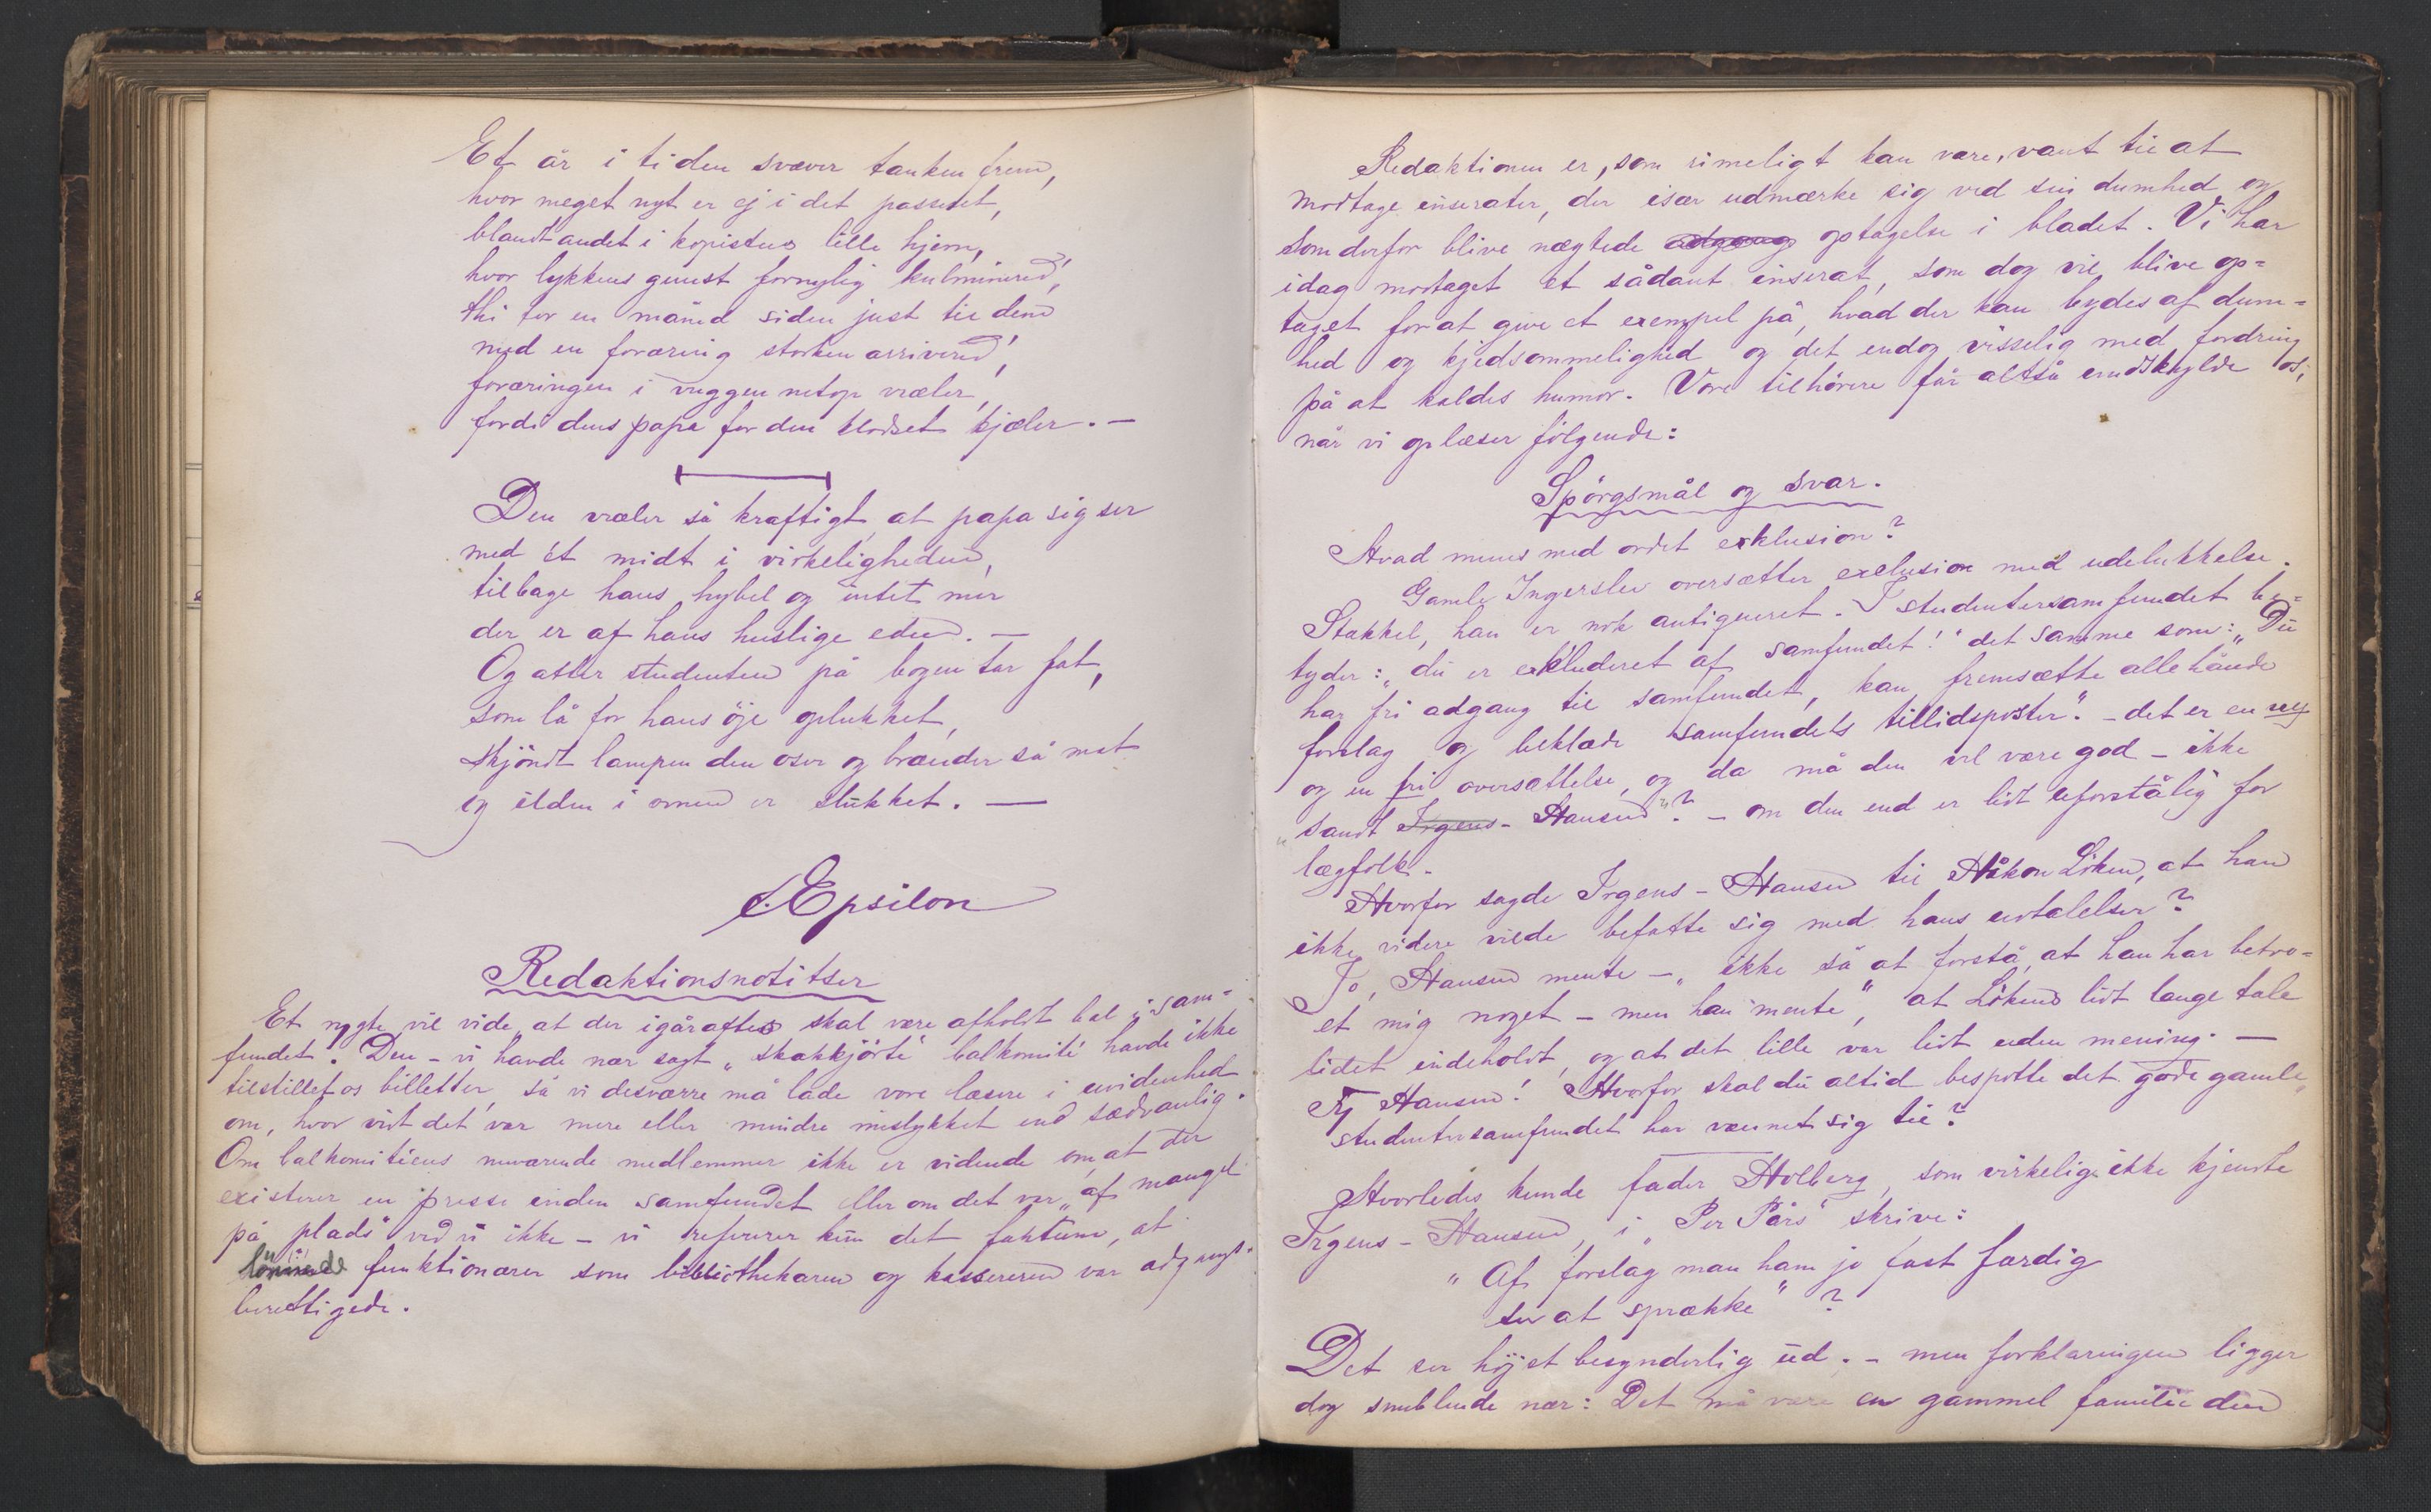 Et år i tiden svæver tanken frem,
hvor meget nyt er ej i det passeret,
blandt andet i kopistens lille hjem,
hvor lykkens gunst fornylig kulminered',
thi for en måned siden just til dem
med en foræring storken arrivered',
foræringen i vuggen netop vræler,
fordi dens papa for den blodset kjæler. —
Den vræler så kraftigt, at papa sig ser
med ét midt i virkeligheden,
tilbage hans hybel og intet mer
der er af hans huslige eden. —
Og atter studenten på bogen tar fat,
som lå for hans øje oplukket,
skjöndt lampen den oser og brænder så mat
og ilden i ovnen er slukket. —
Epsilon
Redaktionsnotitser
Et rygte vil vide, at der igåraftes skal være afholdt bal i sam-
fundet. Den – vi havde nær sagt „skakkjörte" balkomité havde ikke
tilstillet os billetter, så vi desværre må lade vore læsere i uvidenhed
om, hvorvidt det var mere eller mindre mislykket end sædvanlig.
Om balkomiteens nuværende medlemmer ikke er vidende om, at der
existerer en presse inden samfundet eller om det var „af mangel
på plads" ved vi ikke – vi refererer kun det faktum, at
lönnede funktionærer som bibliothekaren og kassereren var adgangs-
berettigede.
Redaktionen er, som rimeligt kan være, vant til at
modtage inserater, der især udmærke sig ved sin dumhed og
som derfor blive nægtede adgang optagelse i bladet. Vi har
idag modtaget et sådant inserat, som dog vil blive op-
taget for at give et exempel på, hvad der kan bydes af dum-
hed og kjedsommelighed og det endog visselig med fordring
på at kaldes humor. Vore tilhörere får altså undskylde os,
når vi oplæser fölgende:
Spörgsmål og svar.
Hvad menes med ordet exklusion?
Gamle Ingerslev oversætter exclusion med udelukkelse.
Stakkel, han er nok antiqueret. I studentersamfundet be-
tyder: „du er exkluderet af samfundet!" det samme som: „Du
har fri adgang til samfundet, kan fremsætte allehånde
forslag og beklæde samfundets tillidsposter". – det er en ny
og en fri oversættelse, og da må den vel være god – ikke
„sandt Irgens-Hansen"? – om den end er lidt uforståelig for
lægfolk.
Hvorfor sagde Irgens-Hansen til Håkon Löken, at han
ikke videre vilde befatte sig med hans udtalelser?
Jo, Hansen mente – „ikke så at forstå, at han har betro-
et mig noget – men han mente", at Lökens lidt lange tale
lidet indeholdt, og at det lille var lidt uden mening. —
Fy Hansen! Hvorfor skal du altid bespotte det gode gamle,
studentersamfundet har vænnet sig til?
Hvorledes kunde fader Holberg, som virkelig ikke kjendte
Irgens-Hansen, i „Per Pårs" skrive:
„Af forslag man ham jo fast færdig
ser at sprække"?
Det ser höjst besynderlig ud. – men forklaringen ligger
dog snublende nær: Det må være en gammel familie den